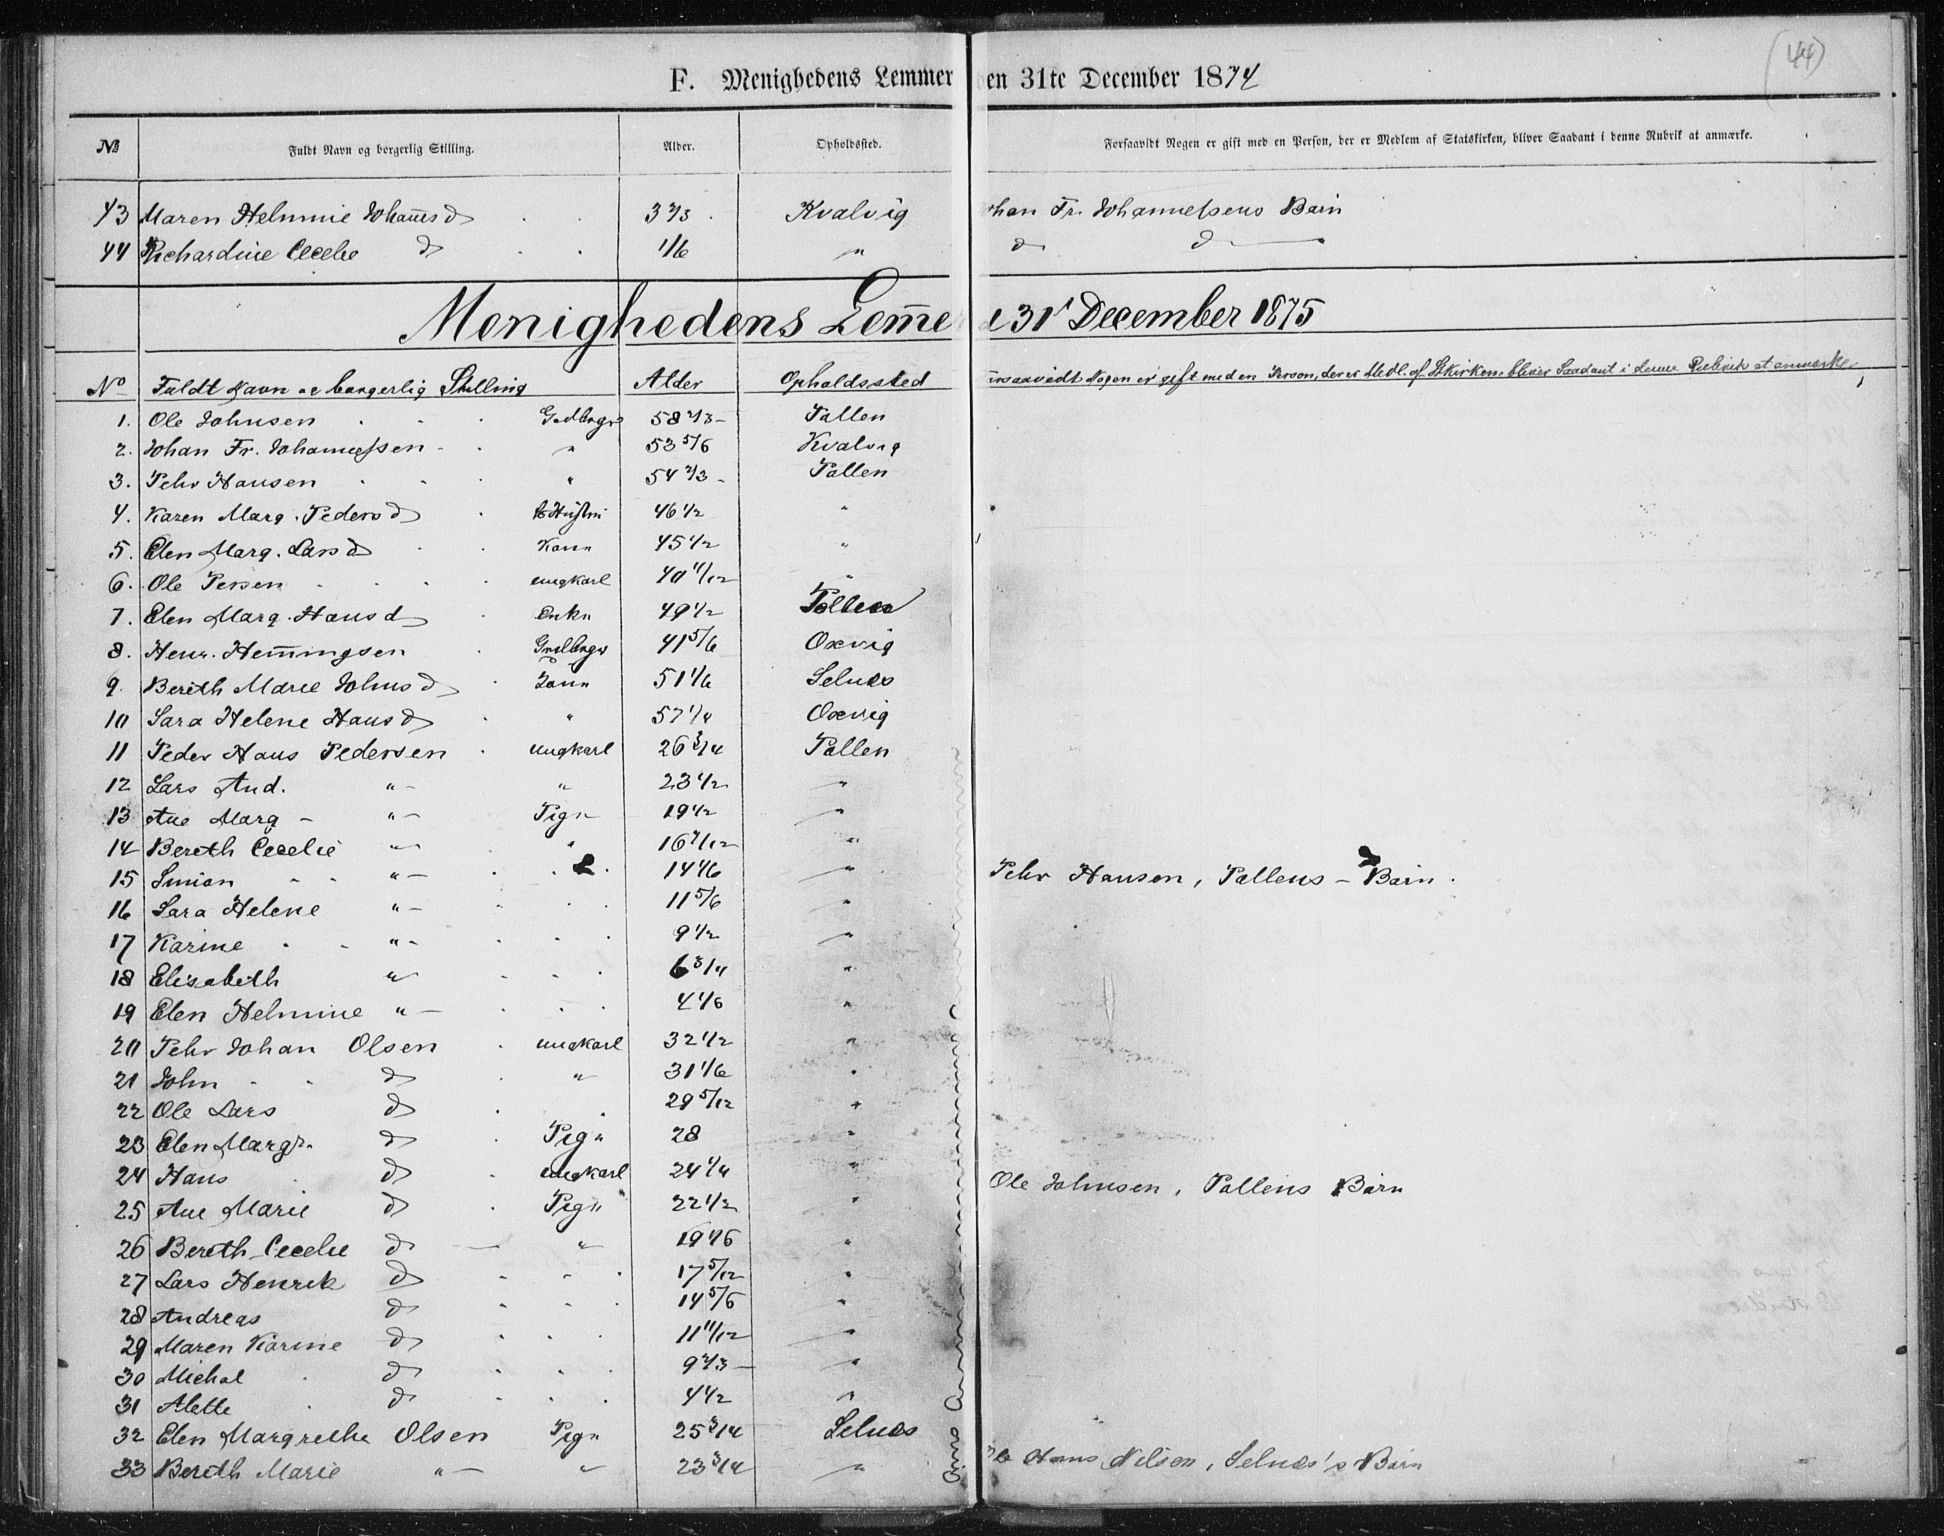 (44)
F. Menighedens Lemmer den 31te December 1874
№ Fuldt Navn og borgerlig Stilling. Alder. Opholdssted. Forsaavidt Nogen er gift med en Person, der er Medlem af Statskirken, bliver Saadant i denne Rubrik at anmærke.
43 Maren Helmine Johansd 3 2/3 Kvalvig Johan Fr. Johannessens Barn
44 Richardine Cecelie d 1/6 " d d
Menighedens Lem̄er 31' December 1875
No Fuldt Navn og borgerlig Stilling Alder Opholdssted Forsaavidt Nogen er gift med en Person, der er Medl. af Stkirken, bliver Saadant i denne Rubrik at anmærke
1. Ole Johnsen 58 2/3 Pollen
2. Johan Fr. Johannessen " 53 5/6 Kvalvig
3. Pehr Hansen " 54 2/3 Pollen
4. Karen Marg. Pedersd 46 1/2 "
5. Elen Marg. Larsd Kone 45 1/2 "
6. Ole Persen ungkarl 40 11/12 "
7. Elen Marg. Hansd Enke 49 1/2 Pollen
8. Henr. Hem̄ingsen 41 5/6 Oxvig
9. Bereth Marie Johnsd 51 1/6 Selnes
10 Sara Helene Hansd " 57 1/4 Oxvig
11 Peder Hans Pedersen ungkarl 26 3/4 Pollen
12 Lars And. " " 23 1/2 "
13 Ane Marg " Pige 19 1/2 "
14 Bereth Cecelie " " 16 7/12 "
15 Simion " 14 1/6 " Pehr Hansen, Pollens Barn.
16 Sara Helene " 11 5/6 "
17 Karine " 9 1/2 "
18 Elisabeth " 6 3/4 "
19 Elen Helmine " 4 1/6 "
20 Pehr Johan Olsen ungkarl 32 1/2 "
21 John d " 31 1/6 "
22 Ole Lars d " 29 5/12 "
23 Elen Margr. d Pige 28 "
24 Hans d ungkarl 24 1/4 " Ole Johnsen, Pollens Barn
25 Ane Marie d Pige 22 1/2 "
26 Bereth Cecelie d " 19 1/6 "
27 Lars Henrik d 17 5/12 "
28 Andreas d 14 5/6 "
29 Maren Karine d 11 11/12 "
30 Michal d 9 2/3 "
31 Alette d 4 1/2 "
32 Elen Margrethe Olsen Pige 25 3/4 Selnes
33 Bereth Marie " " 23 3/4 " Ole Hans Nilsen, Selnes's Barn